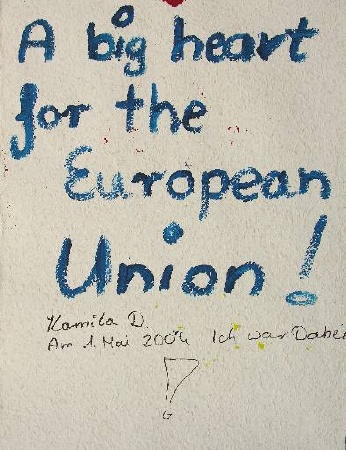 A big heart
for the
European
Union!
Kamila D.
Am 1. Mai 2004 Ich war Dabei
G